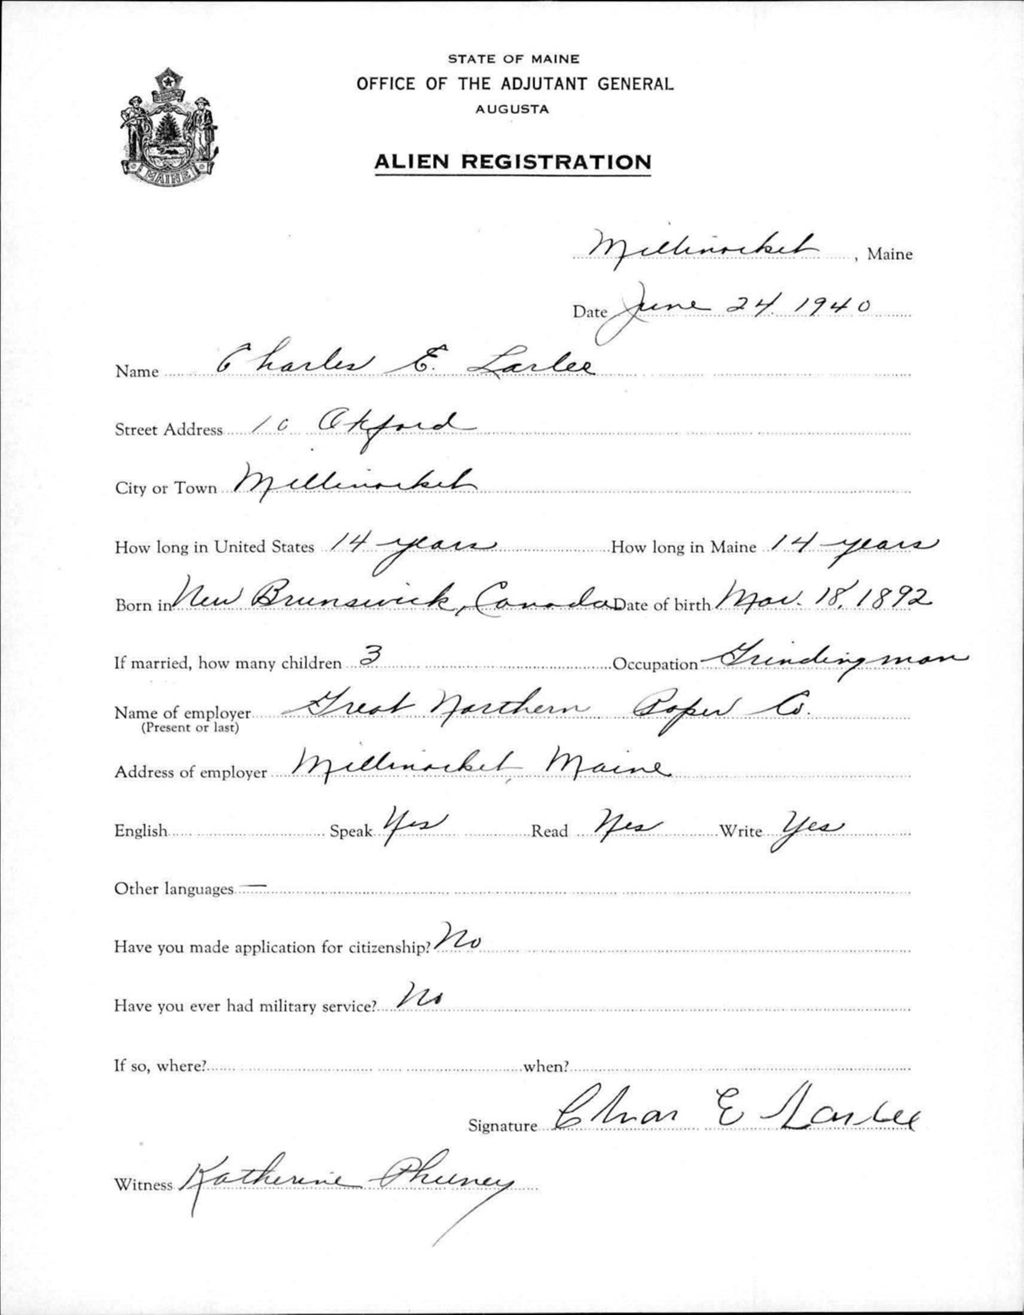 STATE OF MAINE
OFFICE OF THE ADJUTANT GENERAL
AUGUSTA
MAINE
ALIEN REGISTRATION
Millinocket, Maine
Date June 24, 1940
Name Charles E. Larlee
Street Address 10 Oxford
City or Town Millinocket
How long in United States 14 years How long in Maine 14 years
Born in New Brunswick, Canada Date of birth Mar. 18, 1892
If married, how many children 3 Occupation Grindingman
Name of employer Great Northern Paper Co.
(Present or last)
Address of employer Millinocket, Maine
English Speak Yes Read Yes Write Yes
Other languages —
Have you made application for citizenship? No
Have you ever had military service? No
If so, where? when?
Signature Chas E Larlee
Witness Katherine Phinney